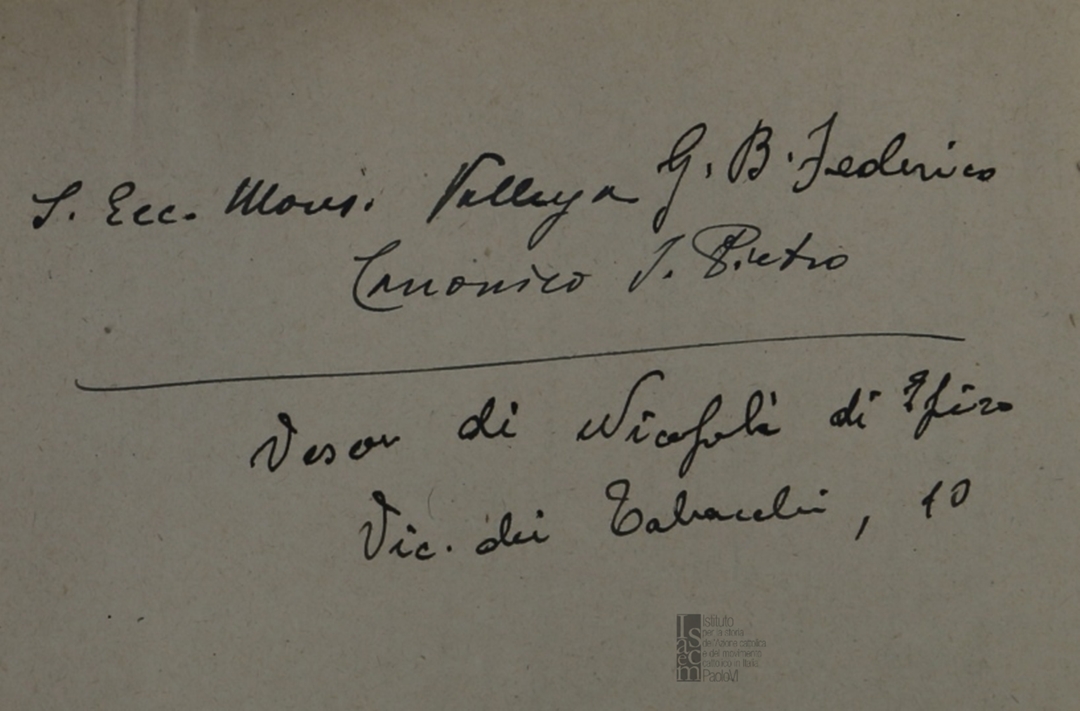 S. Ecc. Mons. Vallega G. B. Federico
Canonico S. Pietro
di Nicopoli di Epiro
Vic. dei Tabacchi, 10
Isacem
Istituto
per la storia
dell'Azione cattolica
e del movimento
cattolico in Italia
PaoloVI